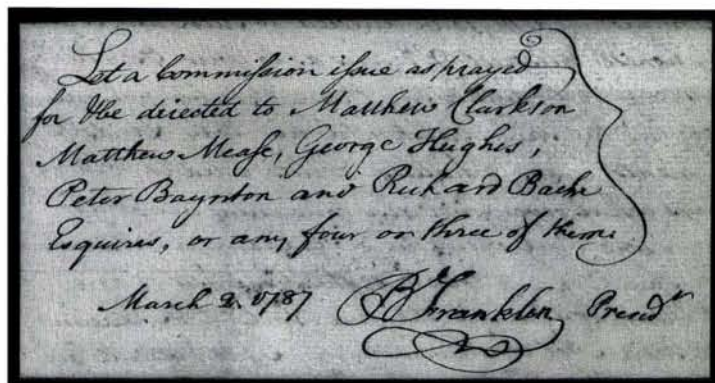 Let a Commiſsion iſsue as prayed
for & be directed to Matthew Clarkson
Matthew Mease, George Hughes,
Peter Baynton and Richard Bache
Esquires, or any four or three of them
March 2. 1787 B Franklin Presidt